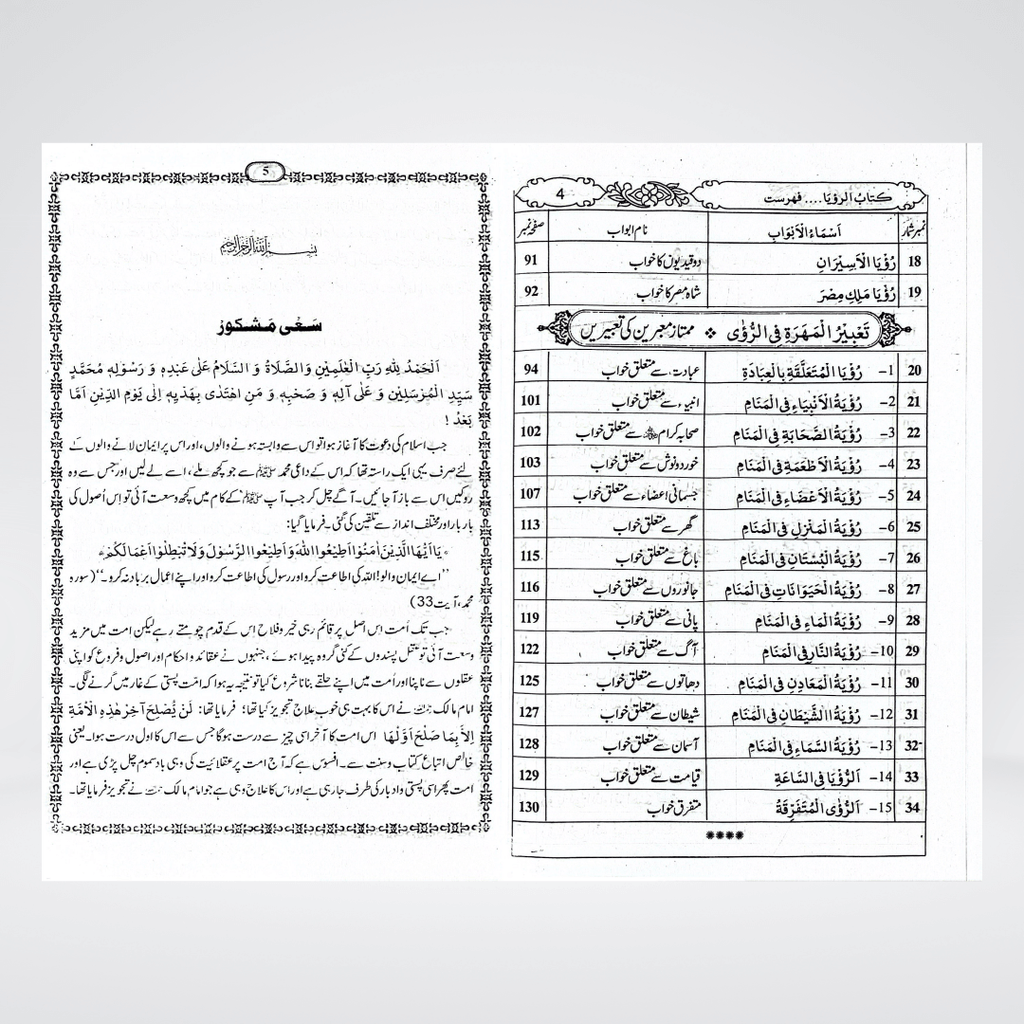 4
کتابُ الرؤیا.... فہرست
نمبر شمار اَسْمَاءُ الْاَبْوَاب نام ابواب صفحہ نمبر
18 رُؤْیَا الْاَسِیْرَانِ دو قیدیوں کا خواب 91
19 رُؤْیَا مَلِکِ مِصْرَ شاہ مصر کا خواب 92
تَعْبِیْرُ الْمَهَرَةِ فِی الرُّؤٰی ❖ ممتاز معبرین کی تعبیریں
20 1– رُؤْیَا الْمُتَعَلَّقَةِ بِالْعِبَادَةِ عبادت سے متعلق خواب 94
21 2– رُؤْیَةُ الْاَنْبِیَاءِ فِی الْمَنَامِ انبیاء سے متعلق خواب 101
22 3– رُؤْیَةُ الصَّحَابَةِ فِی الْمَنَامِ صحابہ کرام سے متعلق خواب 102
23 4– رُؤْیَةُ الْاَطْعِمَةِ فِی الْمَنَامِ خورد و نوش سے متعلق خواب 103
24 5– رُؤْیَةُ الْاَعْضَاءِ فِی الْمَنَامِ جسمانی اعضاء سے متعلق خواب 107
25 6– رُؤْیَةُ الْمَنْزِلِ فِی الْمَنَامِ گھر سے متعلق خواب 113
26 7– رُؤْیَةُ الْبُسْتَانِ فِی الْمَنَامِ باغ سے متعلق خواب 115
27 8– رُؤْیَةُ الْحَیَوَانَاتِ فِی الْمَنَامِ جانوروں سے متعلق خواب 116
28 9– رُؤْیَةُ الْمَاءِ فِی الْمَنَامِ پانی سے متعلق خواب 119
29 10– رُؤْیَةُ النَّارِ فِی الْمَنَامِ آگ سے متعلق خواب 122
30 11– رُؤْیَةُ الْمَعَادِنِ فِی الْمَنَامِ دھاتوں سے متعلق خواب 125
31 12– رُؤْیَةُ الشَّیْطَانِ فِی الْمَنَامِ شیطان سے متعلق خواب 127
32 13– رُؤْیَةُ السَّمَاءِ فِی الْمَنَامِ آسمان سے متعلق خواب 128
33 14– اَلرُّؤْیَا فِی السَّاعَةِ قیامت سے متعلق خواب 129
34 15– اَلرُّؤَی الْمُتَفَرِّقَةُ متفرق خواب 130
****
5
بسم الله الرحمن الرحيم
سَعْی مَشکور
اَلْحَمْدُ لِلّٰهِ رَبِّ الْعٰلَمِیْنَ وَ الصَّلَاةُ وَ السَّلَامُ عَلٰی عَبْدِهٖ وَ رَسُوْلِهٖ مُحَمَّدٍ
سَیِّدِ الْمُرْسَلِیْنَ وَ عَلٰی آلِهٖ وَ صَحْبِهٖ وَ مَنِ اهْتَدٰی بِهَدْیِهٖ اِلٰی یَوْمِ الدِّیْنِ اَمَّا
بَعْدُ !
جب اسلام کی دعوت کا آغاز ہوا تو اس سے وابستہ ہونے والوں، اور اس پر ایمان لانے والوں کے
لئے صرف یہی ایک راستہ تھا کہ اس کے داعی محمد ﷺ سے جو کچھ ملے، اسے لے لیں اور جس سے وہ
روکیں اس سے باز آ جائیں۔ آگے چل کر جب آپ ﷺ کے کام میں کچھ وسعت آئی تو اس اُصول کی
بار بار اور مختلف انداز سے تلقین کی گئی۔ فرمایا گیا:
﴿یٰااَیُّهَا الَّذِیْنَ اٰمَنُوْا اَطِیْعُوا اللّٰهَ وَ اَطِیْعُوا الرَّسُوْلَ وَلَا تُبْطِلُوْا اَعْمَالَکُمْ﴾
’’اے ایمان والو! اللہ کی اطاعت کرو اور رسول کی اطاعت کرو اور اپنے اعمال برباد نہ کرو۔‘‘ (سورہ
محمد، آیت 33)
جب تک اُمت اس اصل پر قائم رہی خیر و فلاح اس کے قدم چومتے رہے لیکن امت میں مزید
وسعت آئی تو عقل پسندوں کے کئی گروہ پیدا ہوئے، جنہوں نے عقائد و احکام اور اصول و فروع کو اپنی
عقلوں سے ناپنا اور اُمت میں اپنے حلقے بنانا شروع کیا تو نتیجہ یہ ہوا کہ امت پستی کے غار میں گرنے لگی۔
امام مالک نے اس کا بہت ہی خوب علاج تجویز کیا تھا؛ فرمایا تھا: لَنْ یُّصْلِحَ آخِرَ هٰذِهِ الْاُمَّةِ
اِلَّا بِمَا صَلُحَ اَوَّلُهَا اس امت کا آخر اسی چیز سے درست ہوگا جس سے اس کا اول درست ہوا۔ یعنی
خالص اتباع کتاب و سنت سے۔ افسوس ہے کہ آج امت پر عقلانیت کی وہی بادِ سموم چل پڑی ہے اور
امت پھر اسی پستی و ادبار کی طرف جا رہی ہے اور اس کا علاج وہی ہے جو امام مالک نے تجویز فرمایا تھا۔